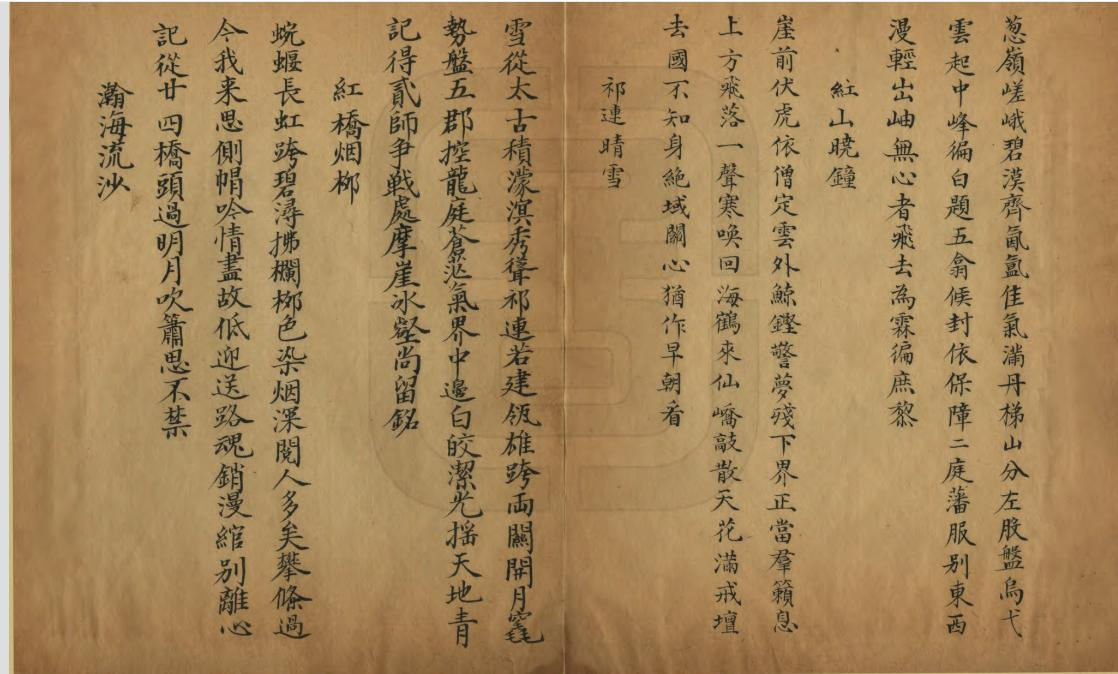 葱嶺嵯峨碧漠齊氤氳佳氣滿丹梯山分左股盤烏弋
雲起中峰徧白題五翕侯封依保障二庭藩服別東西
漫輕出岫無心者飛去為霖徧庶黎
紅山曉鐘
崖前伏虎依僧定雲外鯨鏗警夢殘下界正當羣籟息
上方飛落一聲寒喚回海鶴來仙嶠敲散天花滿戒壇
去國不知身絶域關心猶作早朝看
祁連晴雪
雪從太古積濛溟秀聳祁連若建瓴雄跨兩關開月窟
勢盤五郡控龍庭蒼茫氣界中邊白皎潔光摇天地青
記得貳師争戰處摩崖冰壑尚留銘
紅橋烟栁
蜿蝘長虹跨碧潯拂欄栁色染烟深閲人多矣攀條過
今我来思側帽吟情盡故低迎送路魂銷漫綰别離心
記從廿四橋頭過明月吹簫思不禁
瀚海流沙